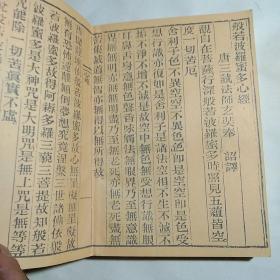 般若波羅蜜多心經
唐三藏法師玄奘奉 詔譯
觀自在菩薩行深般若波羅蜜多時照見五蘊皆空
度一切苦厄
舍利子色不異空空不異色色即是空空即是色受
想行識亦復如是舍利子是諸法空相不生不滅不
垢不淨不增不減是故空中無色無受想行識無眼
耳鼻舌身意無色聲香味觸法無眼界乃至無意識
界無無明亦無無明盡乃至無老死亦無老死盡無
苦集滅道無智亦無得以無所得故
罣礙故
恐怖遠離顛倒夢想究竟涅槃三世諸佛依般
若波羅蜜多故得阿耨多羅三藐三菩提故知般若
波羅蜜多是大神咒是大明咒是無上咒是無等等
咒能除一切苦真實不虛